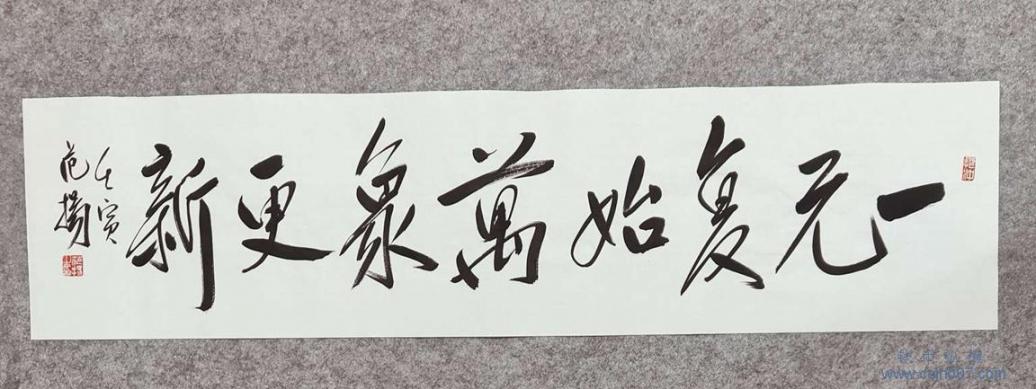 一元复始萬象更新
壬寅
范揚